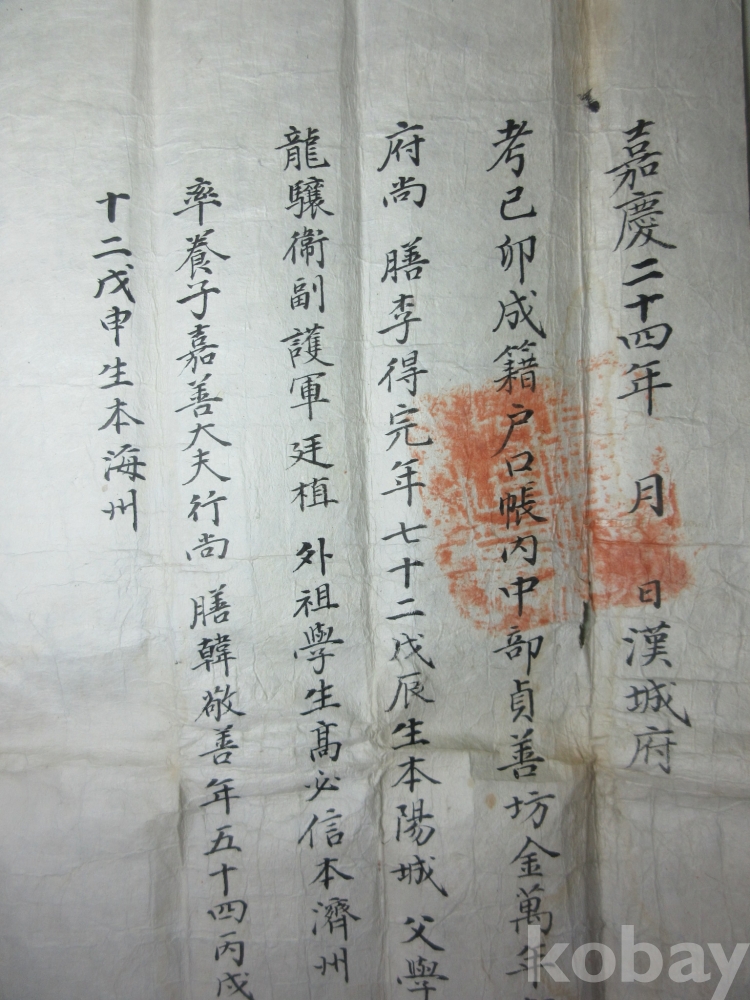 嘉慶二十四年 月 日漢城府
考己卯成籍户口帳內中部貞善坊金萬年
府尚 膳李得完年七十二戊辰生本陽城 父學
龍驤衛副護軍廷植 外祖學生高必信本濟州
率養子嘉善大夫行尚 膳韓敬善年五十四丙戌
十二戊申生本海州
kobay